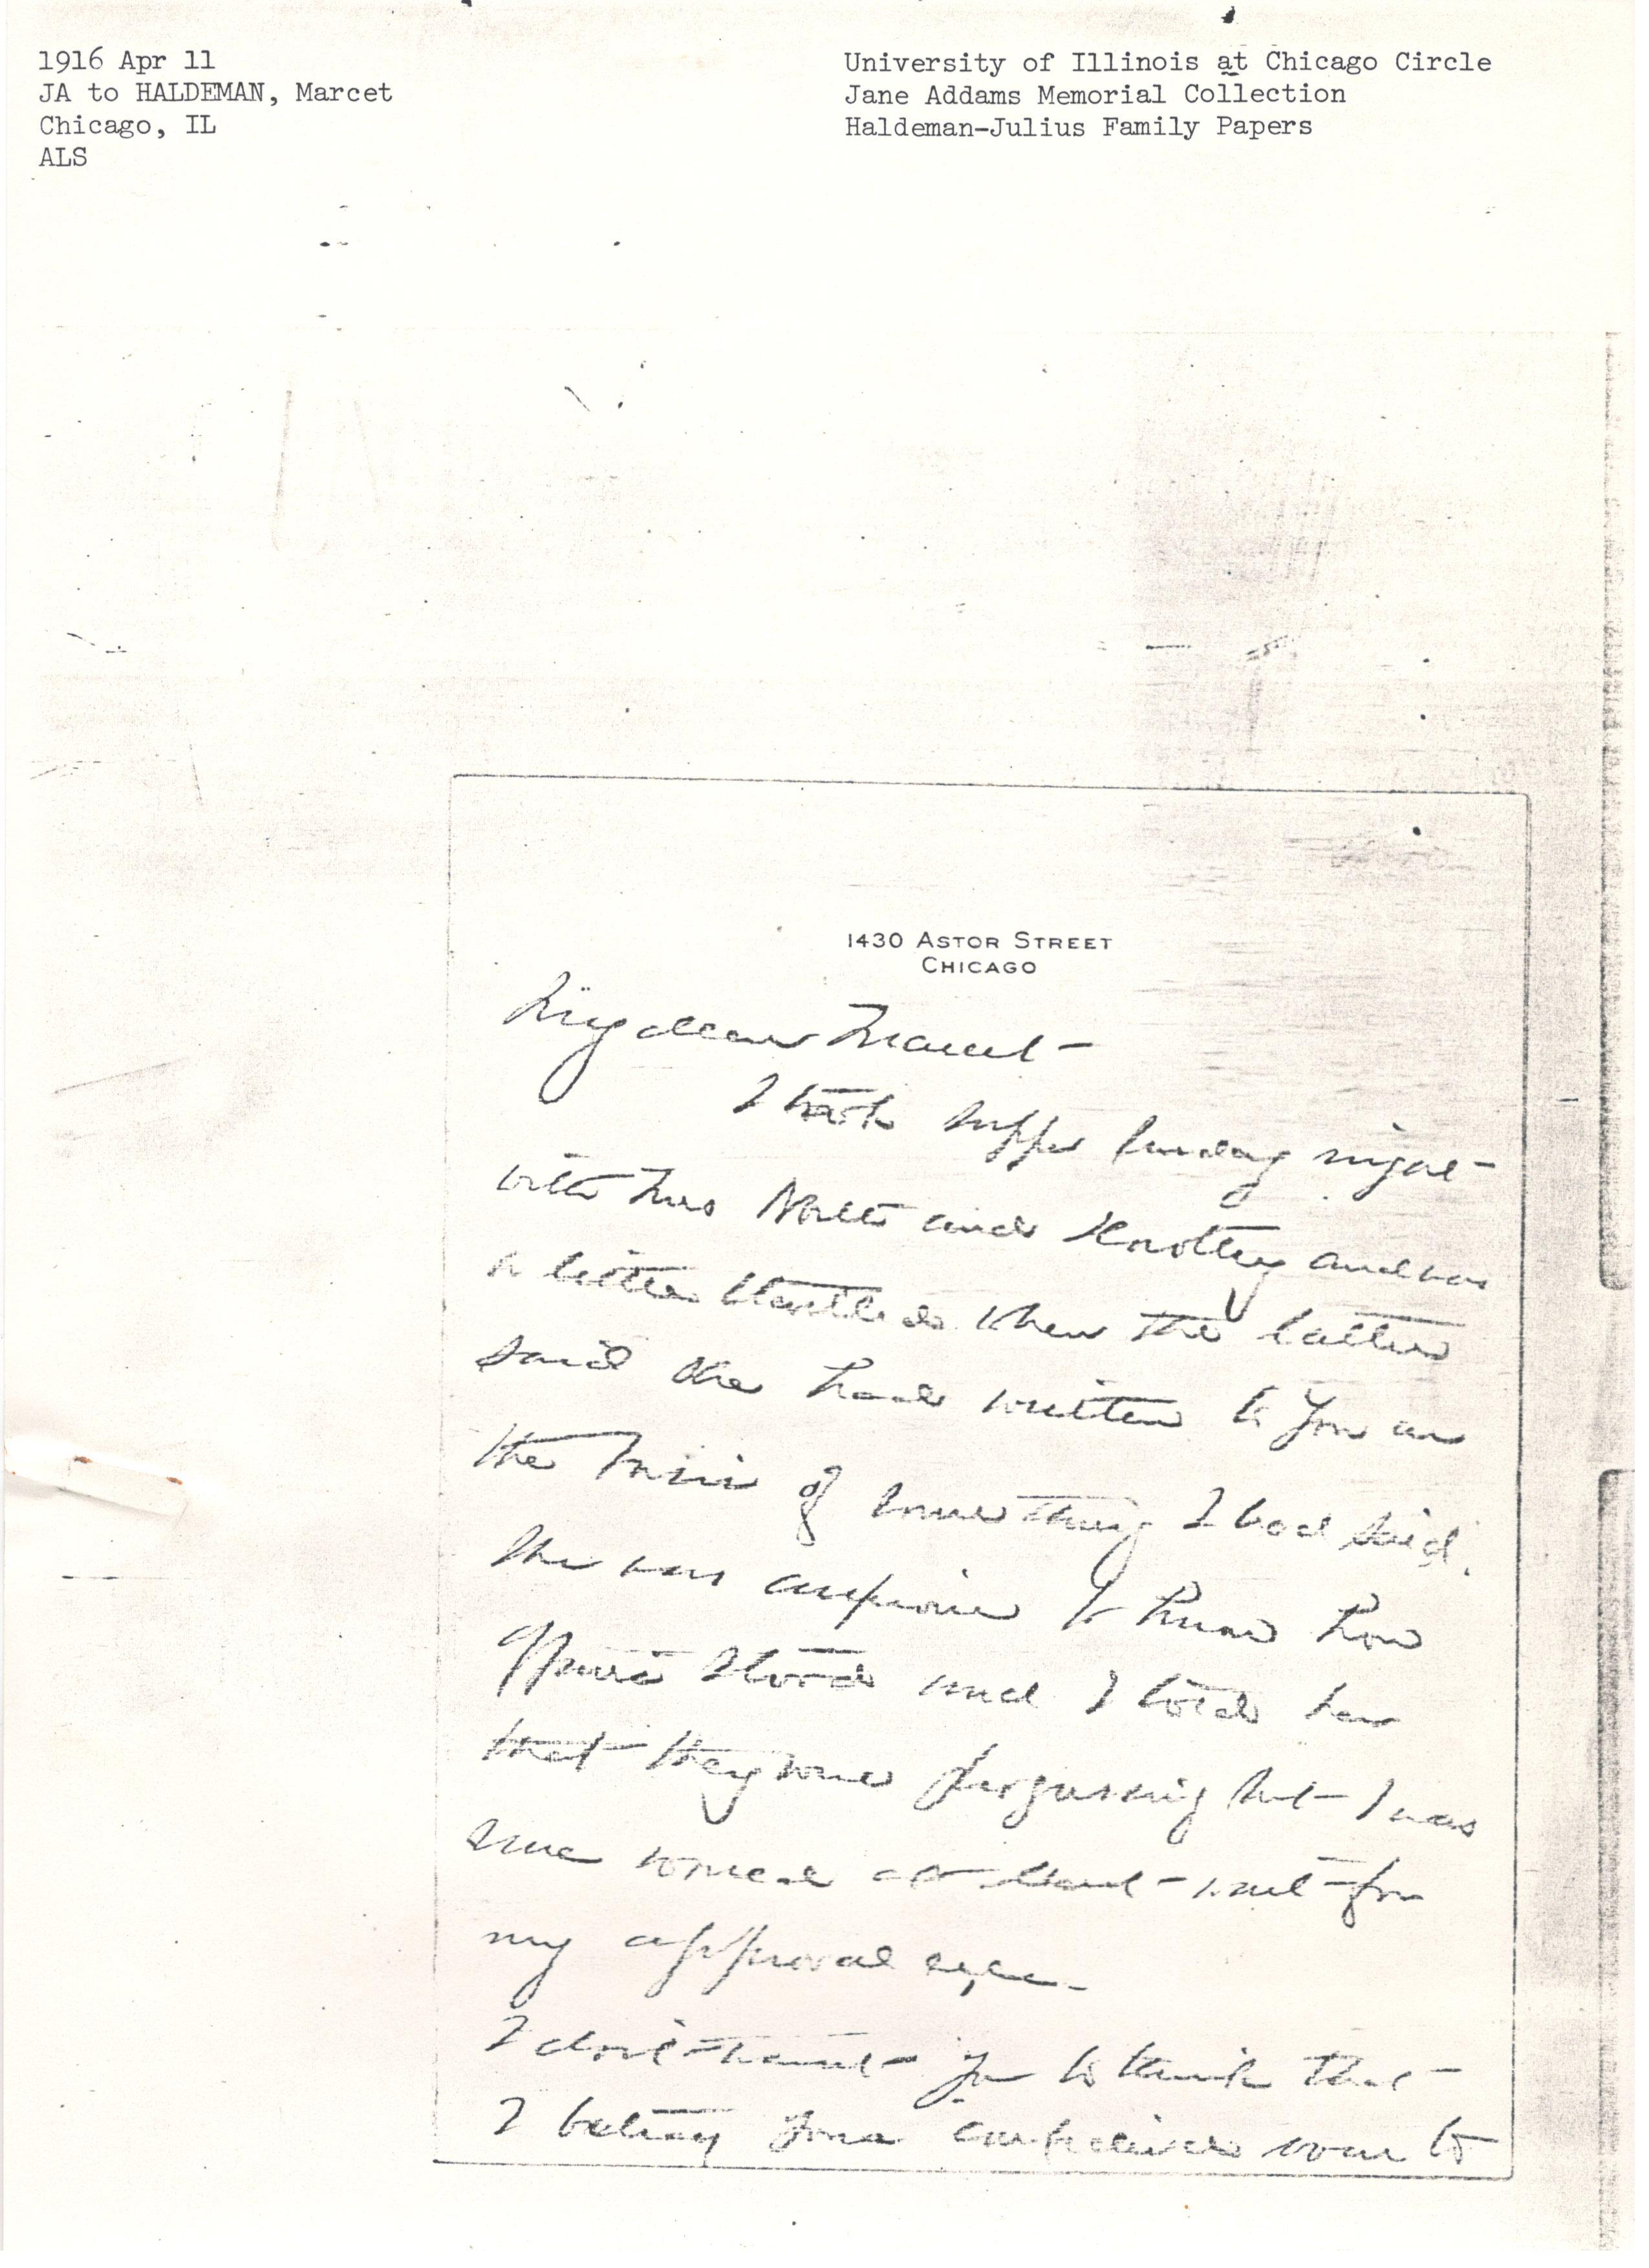 1916 Apr 11
JA to HALDEMAN, Marcet
Chicago, IL
ALS
University of Illinois at Chicago Circle
Jane Addams Memorial Collection
Haldeman-Julius Family Papers
1430 ASTOR STREET
CHICAGO
My dear Marcet –
I took supper Sunday night
with Mrs and Dorothy and was
a little startled when the latter
said she had written to you on
the basis of something I had said.
She was anxious to know how
affairs stood and I told her
that they were progressing but I was
sure would at least wait for
my approval etc.
I don't want you to think that
I betray your confidence even to